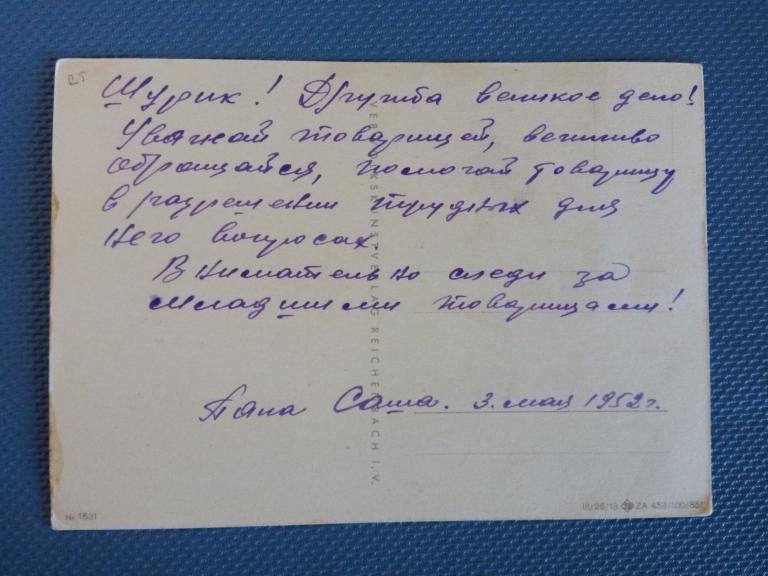 Шурик! Дружба великое дело!
Уважай товарищей, вежливо
обращайся, помогай товарищу
в разрешении трудных для
него вопросах.
Внимательно следи за
младшими товарищами!
Папа Саша. 3. мая 1952 г.
VERLAG REICHENBACH I. V.
Nr. 1631
III/26/13 ZA 453/100/851